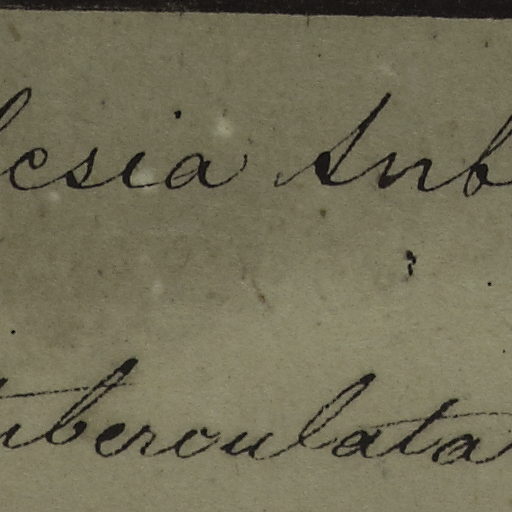 lesia sub
tuberculata